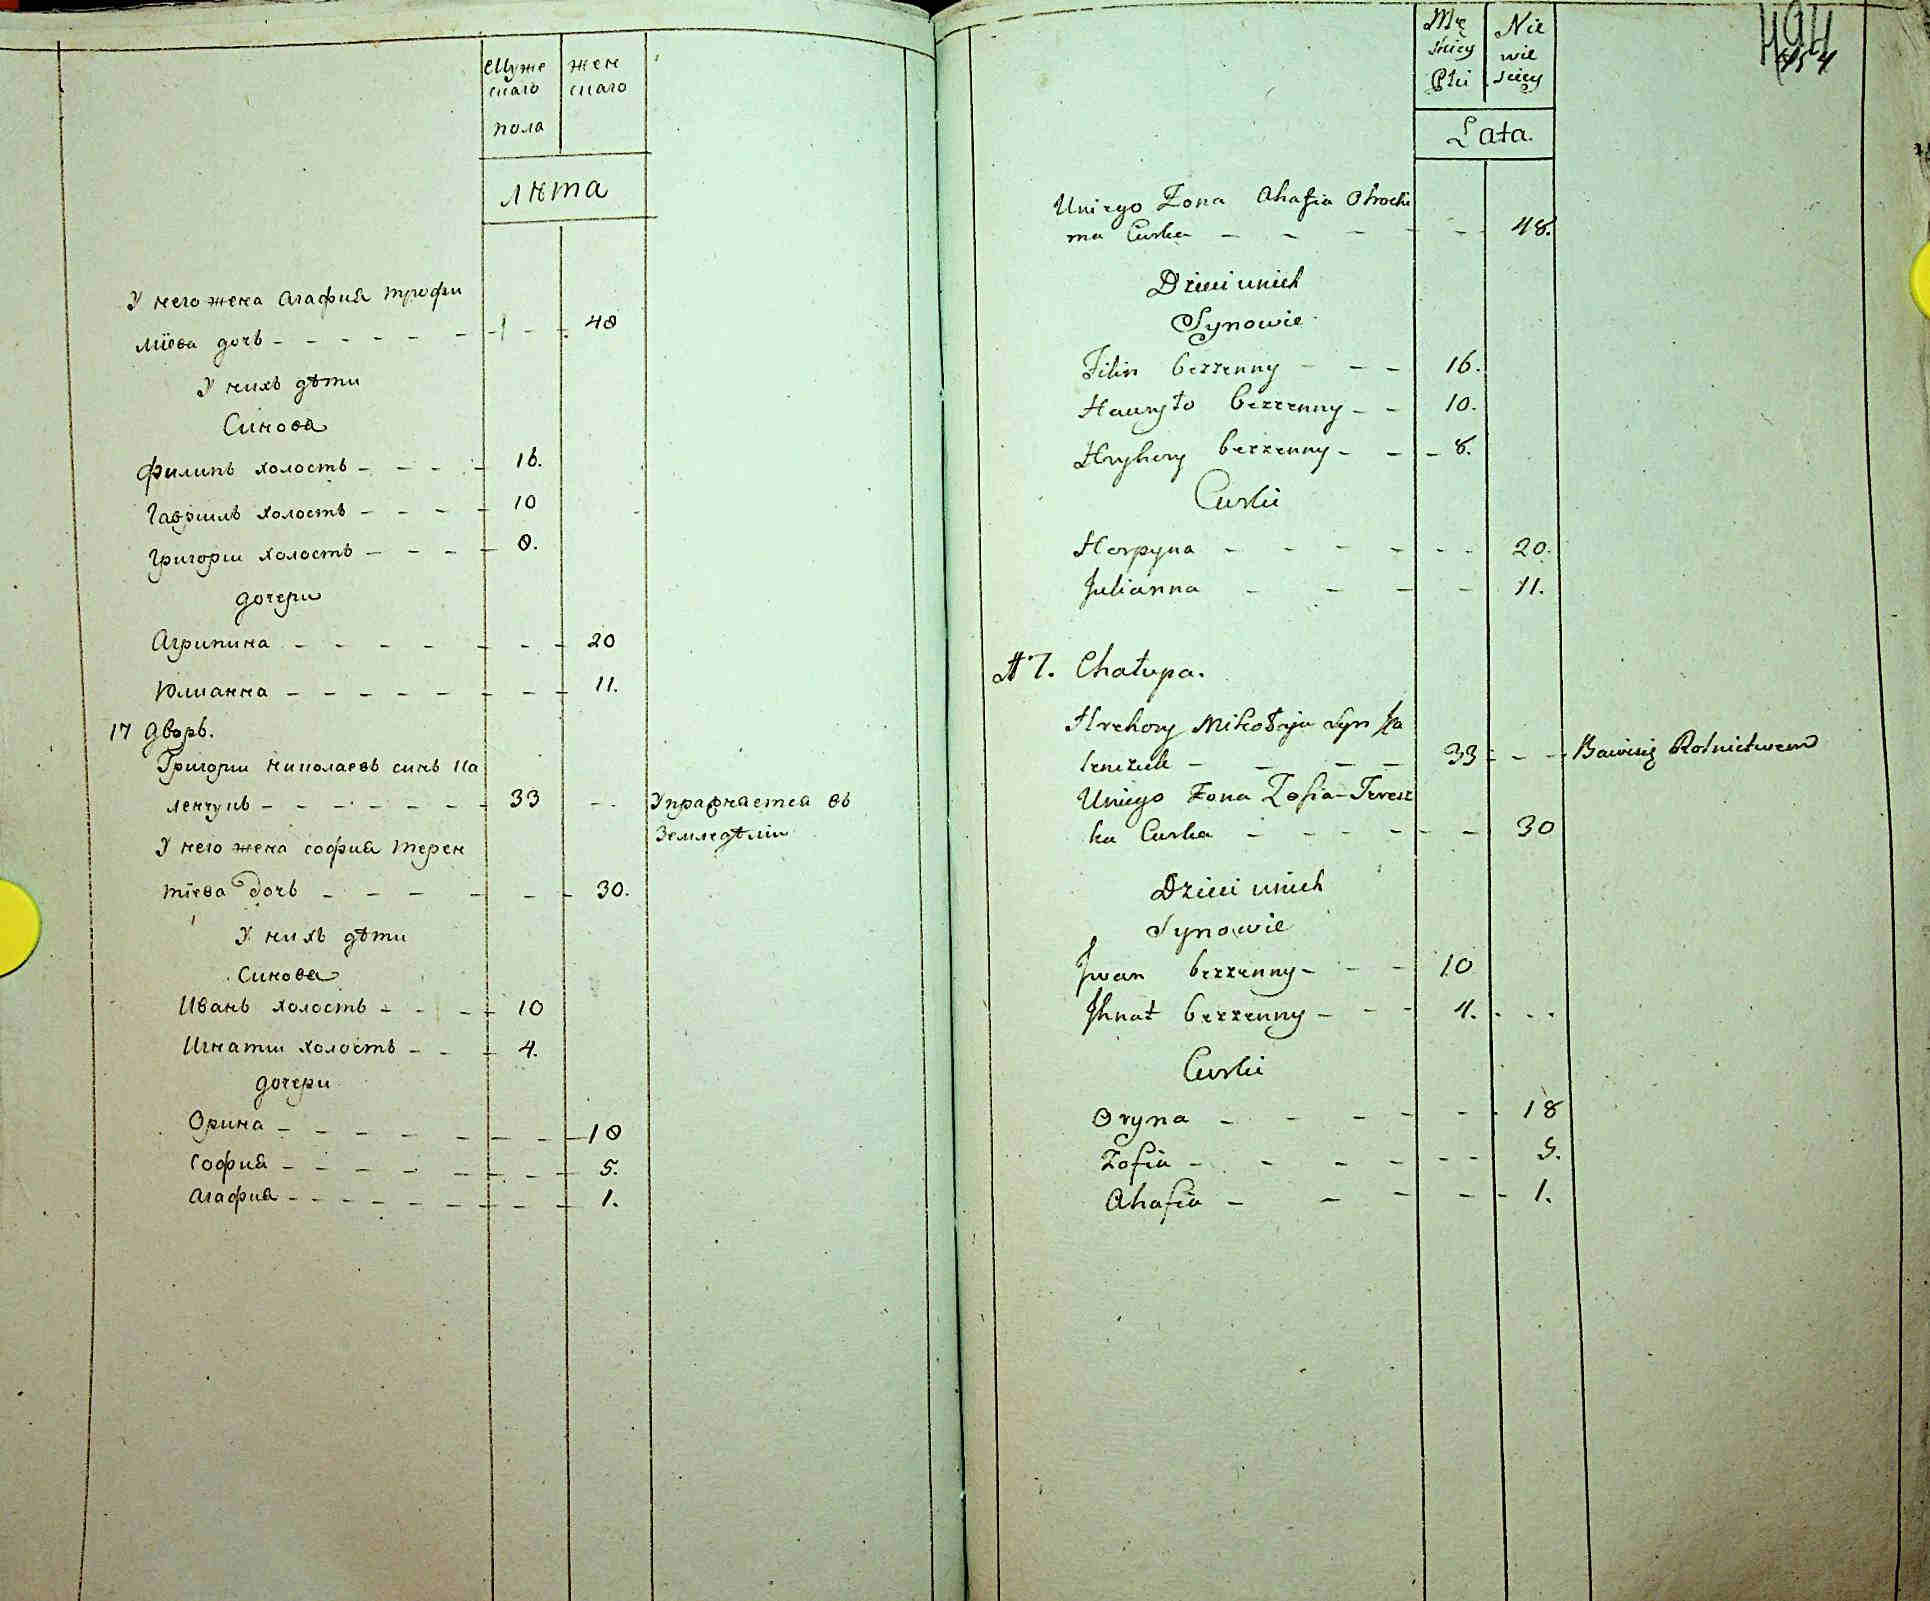 Муже
скаго
пола
жен
скаго
лѣта
У него жена Агафия трофи
міева дочь - - - - - - 48
У нихъ дѣти
Синова
Филипъ холостъ - - - - 16.
Гавриилъ холостъ - - - - 10
Григории холостъ - - - - 8.
дочери
Агрипина - - - - - - - - 20
Юлианна - - - - - - - - 11.
17 дворъ.
Григории николаевъ синъ Ка
ленчукъ - - - - - - - 33 - - Упражняется въ
Земледѣлии
У него жена софия терен
тіева дочь - - - - - - - 30.
У нихъ дѣти
Синова
Иванъ холостъ - - - - 10
Игнатии холостъ - - - 4.
дочери
Орина - - - - - - - - - 18
София - - - - - - - - - 5.
Агафия - - - - - - - - - 1.
Mę
skiey
Płci
Nie
wie
sciey
Lata.
494
454
Uniego Zona Ahafia Ohrochi
ma Curka - - - - - - 48.
Dzieci unich
Synowie
Filip bezzenny - - - 16.
Hawryło bezzenny - - 10.
Hryhory bezzenny - - - 8.
Curki
Horpyna - - - - - - - 20.
Julianna - - - - 11.
17. Chałupa.
Hrehory Mikołaja syn Ka
lenczuk - - - - 33 - - - Bawisię Rolnictwem
Uniego Zona Zofia Teresz
ka Curka - - - - - - 30
Dzieci unich
Synowie
Iwan bezzenny - - - 10
Ihnat bezzenny - - - 4. - - -
Curki
Oryna - - - - - - 18
Zofia - - - - - - - 5.
Ahafia - - - - - 1.